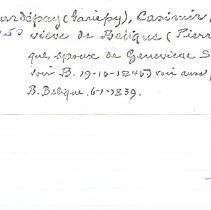 ardépay (Gariépy), Casimir
50 viève de Bélique (Pierr
que, époux de Geneviève S
voir B. 19-10-1845) voir aussi
B. Belique. 6-1-1839.